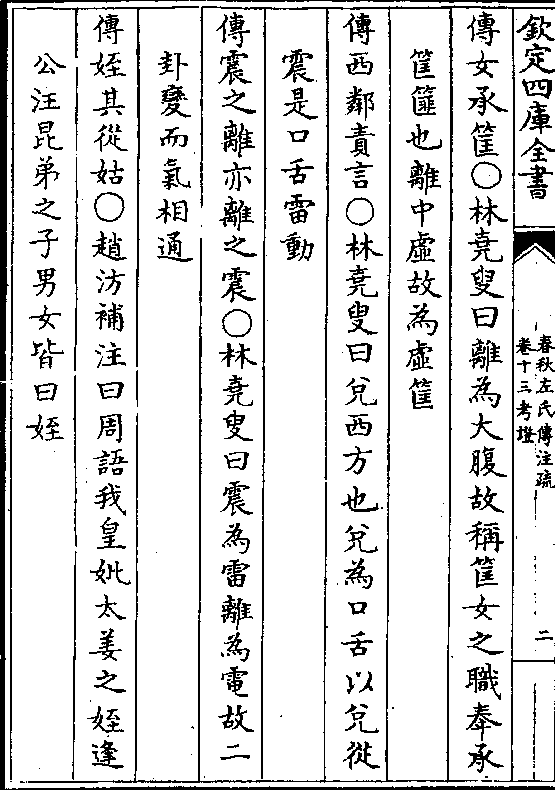 欽定四庫全書
春秋左氏傳注疏
卷十三考證
二
傳女承筐○林堯叟曰離為大腹故稱筐女之職奉承
筐篚也離中虛故為虛筐
傳西鄰責言○林堯叟曰兌西方也兌為口舌以兌從
震是口舌雷動
傳震之離亦離之震○林堯叟曰震為雷離為電故二
卦變而氣相通
傳姪其從姑○趙汸補注曰周語我皇妣太姜之姪逢
公注昆弟之子男女皆曰姪